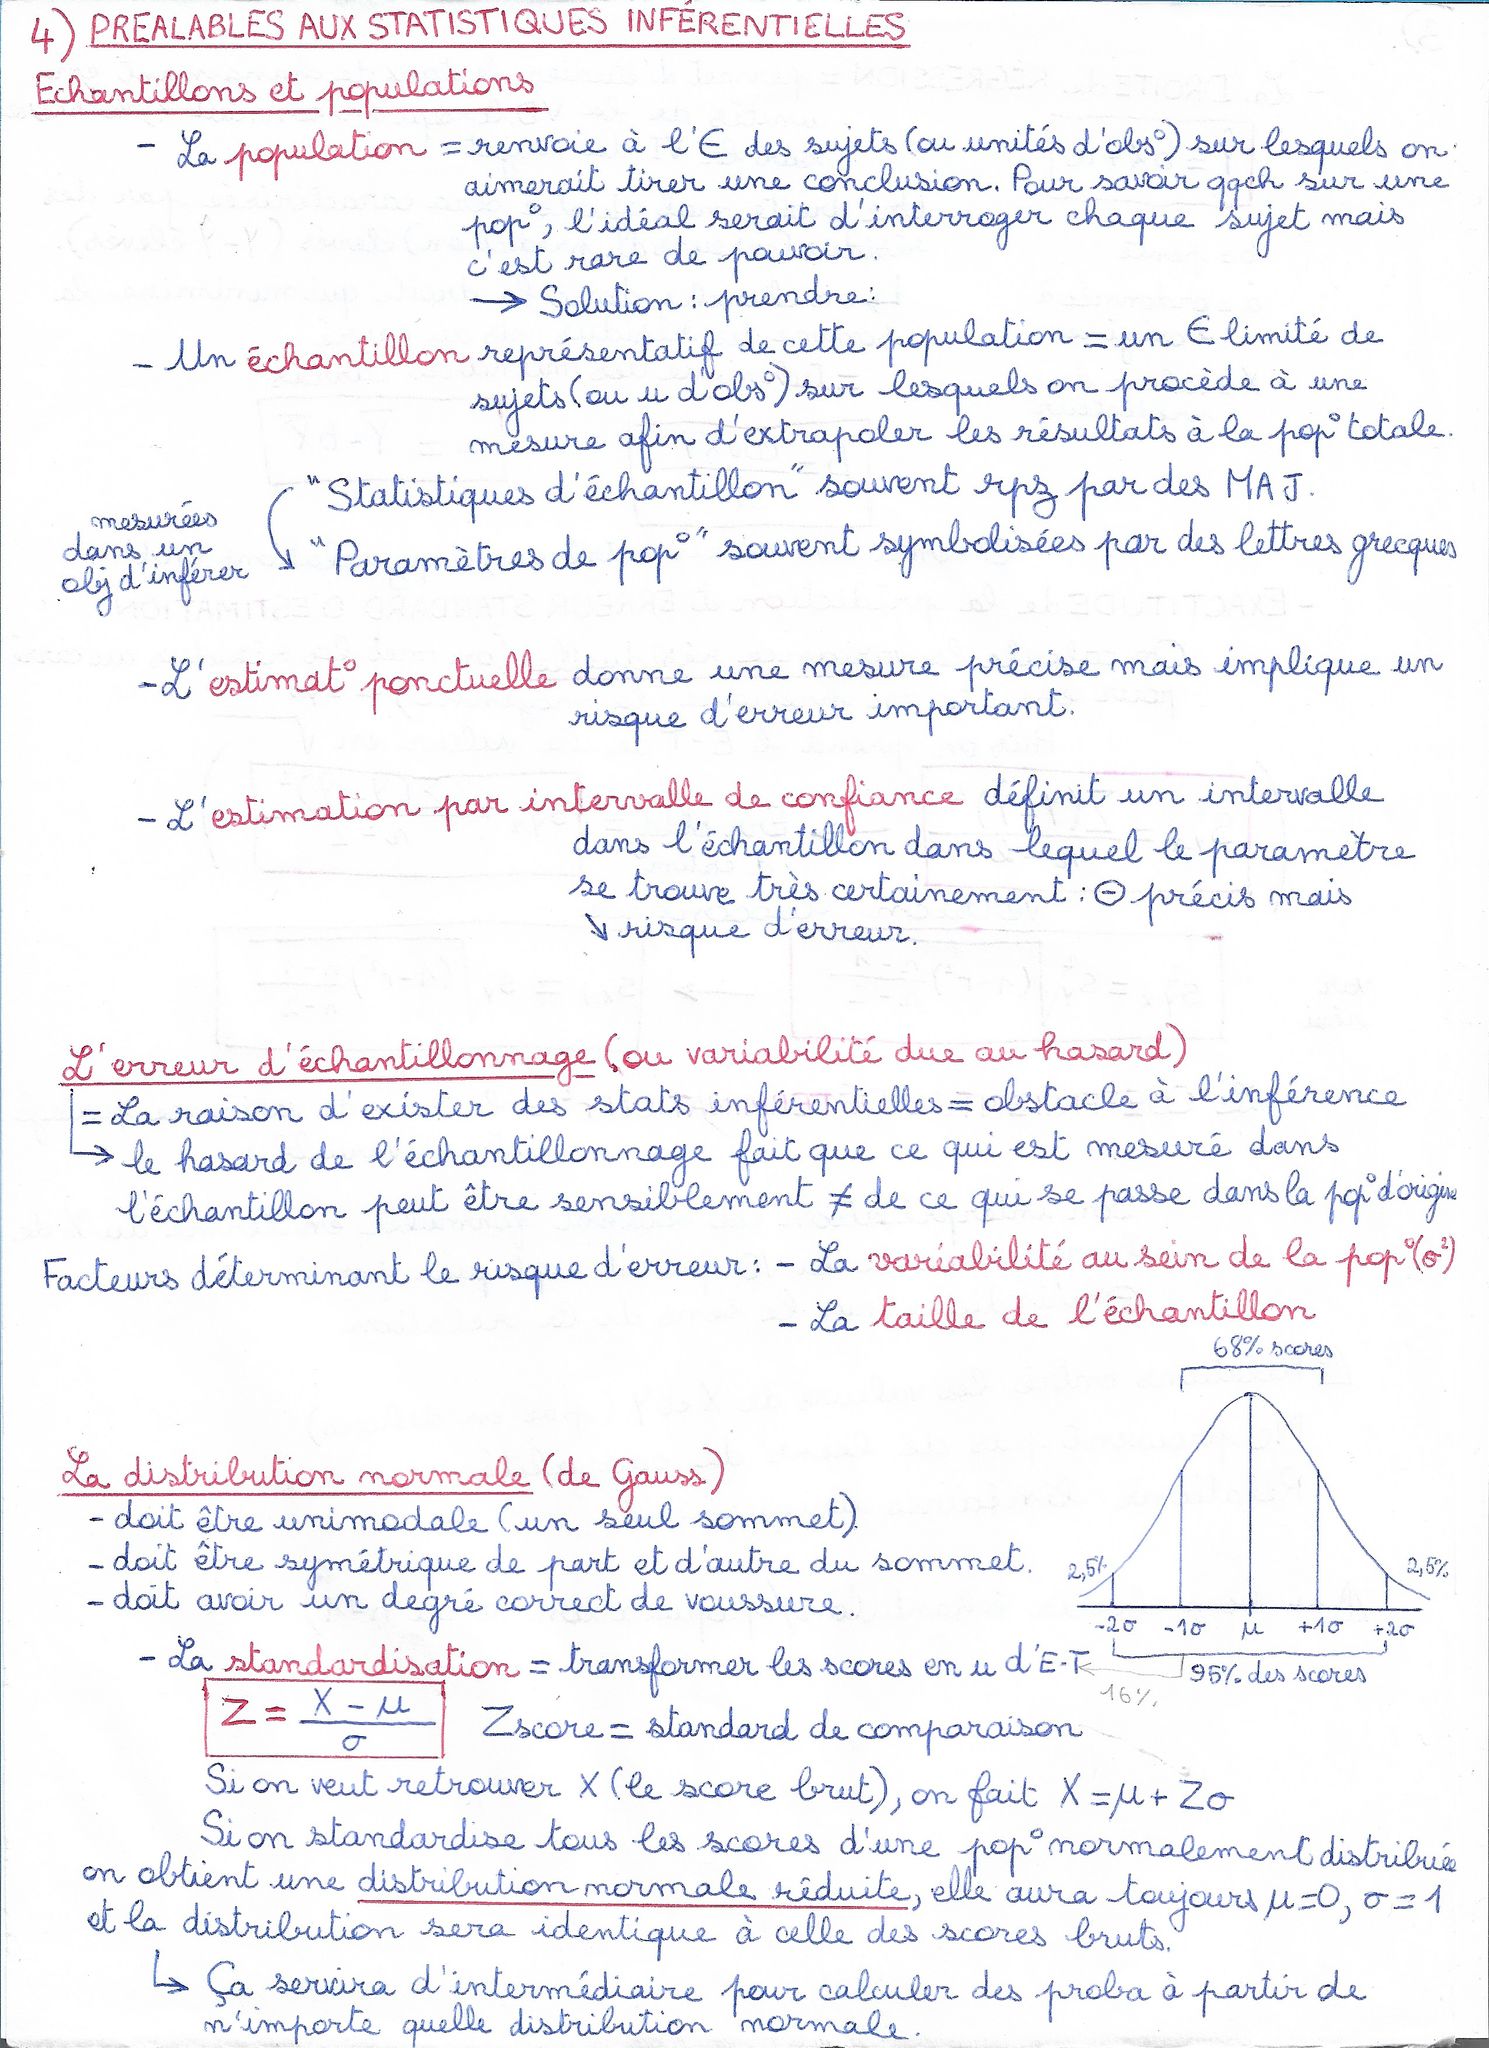 4) PREALABLES AUX STATISTIQUES INFÉRENTIELLES
Echantillons et populations
- La population = renvoie à l'E des sujets (ou unités d'obs°) sur lesquels on
aimerait tirer une conclusion. Pour savoir qqch sur une
pop°, l'idéal serait d'interroger chaque sujet mais
c'est rare de pouvoir.
→ Solution : prendre :
- Un échantillon représentatif de cette population = un E limité de
sujets (ou u d'obs°) sur lesquels on procède à une
mesure afin d'extrapoler les résultats à la pop° totale.
"Statistiques d'échantillon" souvent rpz par des MAJ.
mesurées
dans un
obj d'inférer
"Paramètres de pop°" souvent symbolisées par des lettres grecques
- L'estimat° ponctuelle donne une mesure précise mais implique un
risque d'erreur important.
- L'estimation par intervalle de confiance définit un intervalle
dans l'échantillon dans lequel le paramètre
se trouve très certainement : ⊖ précis mais
↘ risque d'erreur.
L'erreur d'échantillonnage (ou variabilité due au hasard)
= La raison d'exister des stats inférentielles = obstacle à l'inférence
→ le hasard de l'échantillonnage fait que ce qui est mesuré dans
l'échantillon peut être sensiblement ≠ de ce qui se passe dans la pop° d'origine
Facteurs déterminant le risque d'erreur : - La variabilité au sein de la pop° (σ²)
- La taille de l'échantillon
68% scores
La distribution normale (de Gauss)
- doit être unimodale (un seul sommet)
- doit être symétrique de part et d'autre du sommet.
- doit avoir un degré correct de voussure.
2,5% 2,5%
-2σ -1σ μ +1σ +2σ
95% des scores
16%
- La standardisation = transformer les scores en u d'E-T
Z = X - μ / σ Zscore = standard de comparaison
Si on veut retrouver X (le score brut), on fait X = μ + Zσ
Si on standardise tous les scores d'une pop° normalement distribuée
on obtient une distribution normale réduite, elle aura toujours μ=0, σ=1
et la distribution sera identique à celle des scores bruts.
↳ Ça servira d'intermédiaire pour calculer des proba à partir de
n'importe quelle distribution normale.